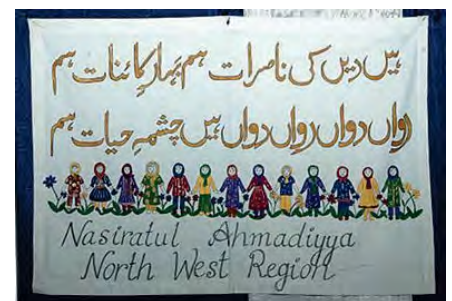 ہیں دیں کی ناصرات ہم بہارِ کائنات ہم
رواں دواں رواں دواں ہیں چشمہِ حیات ہم
Nasiratul Ahmadiyya
North West Region